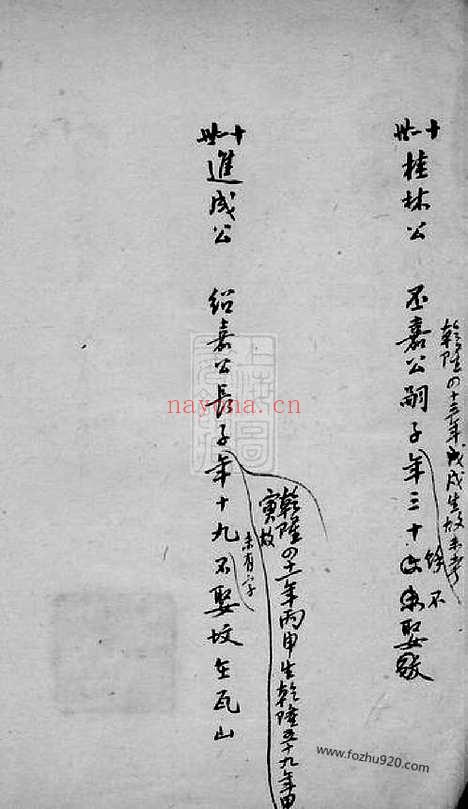 十一世桂林公 丕嘉公嗣子年三十餘不娶歿
乾隆四十三年戊戌生故未考
十一世進成公 紹嘉公長子年十九不娶坟在瓦山
未有字
乾隆四十一年丙申生乾隆五十九年甲寅故
nayona.cn
www.fozhu920.com